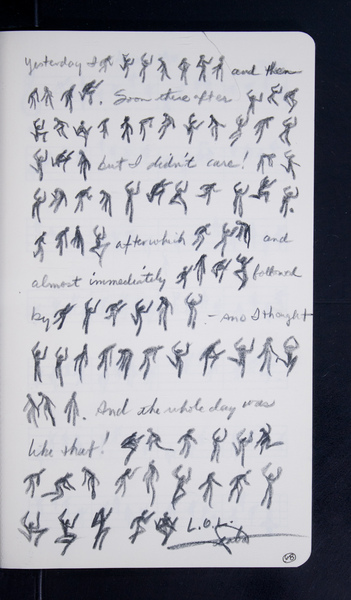 Yesterday I and then
. Soon thereafter
but I didn't care!
after which and
almost immediately followed
by – and I thought
. And the whole day was
like that!